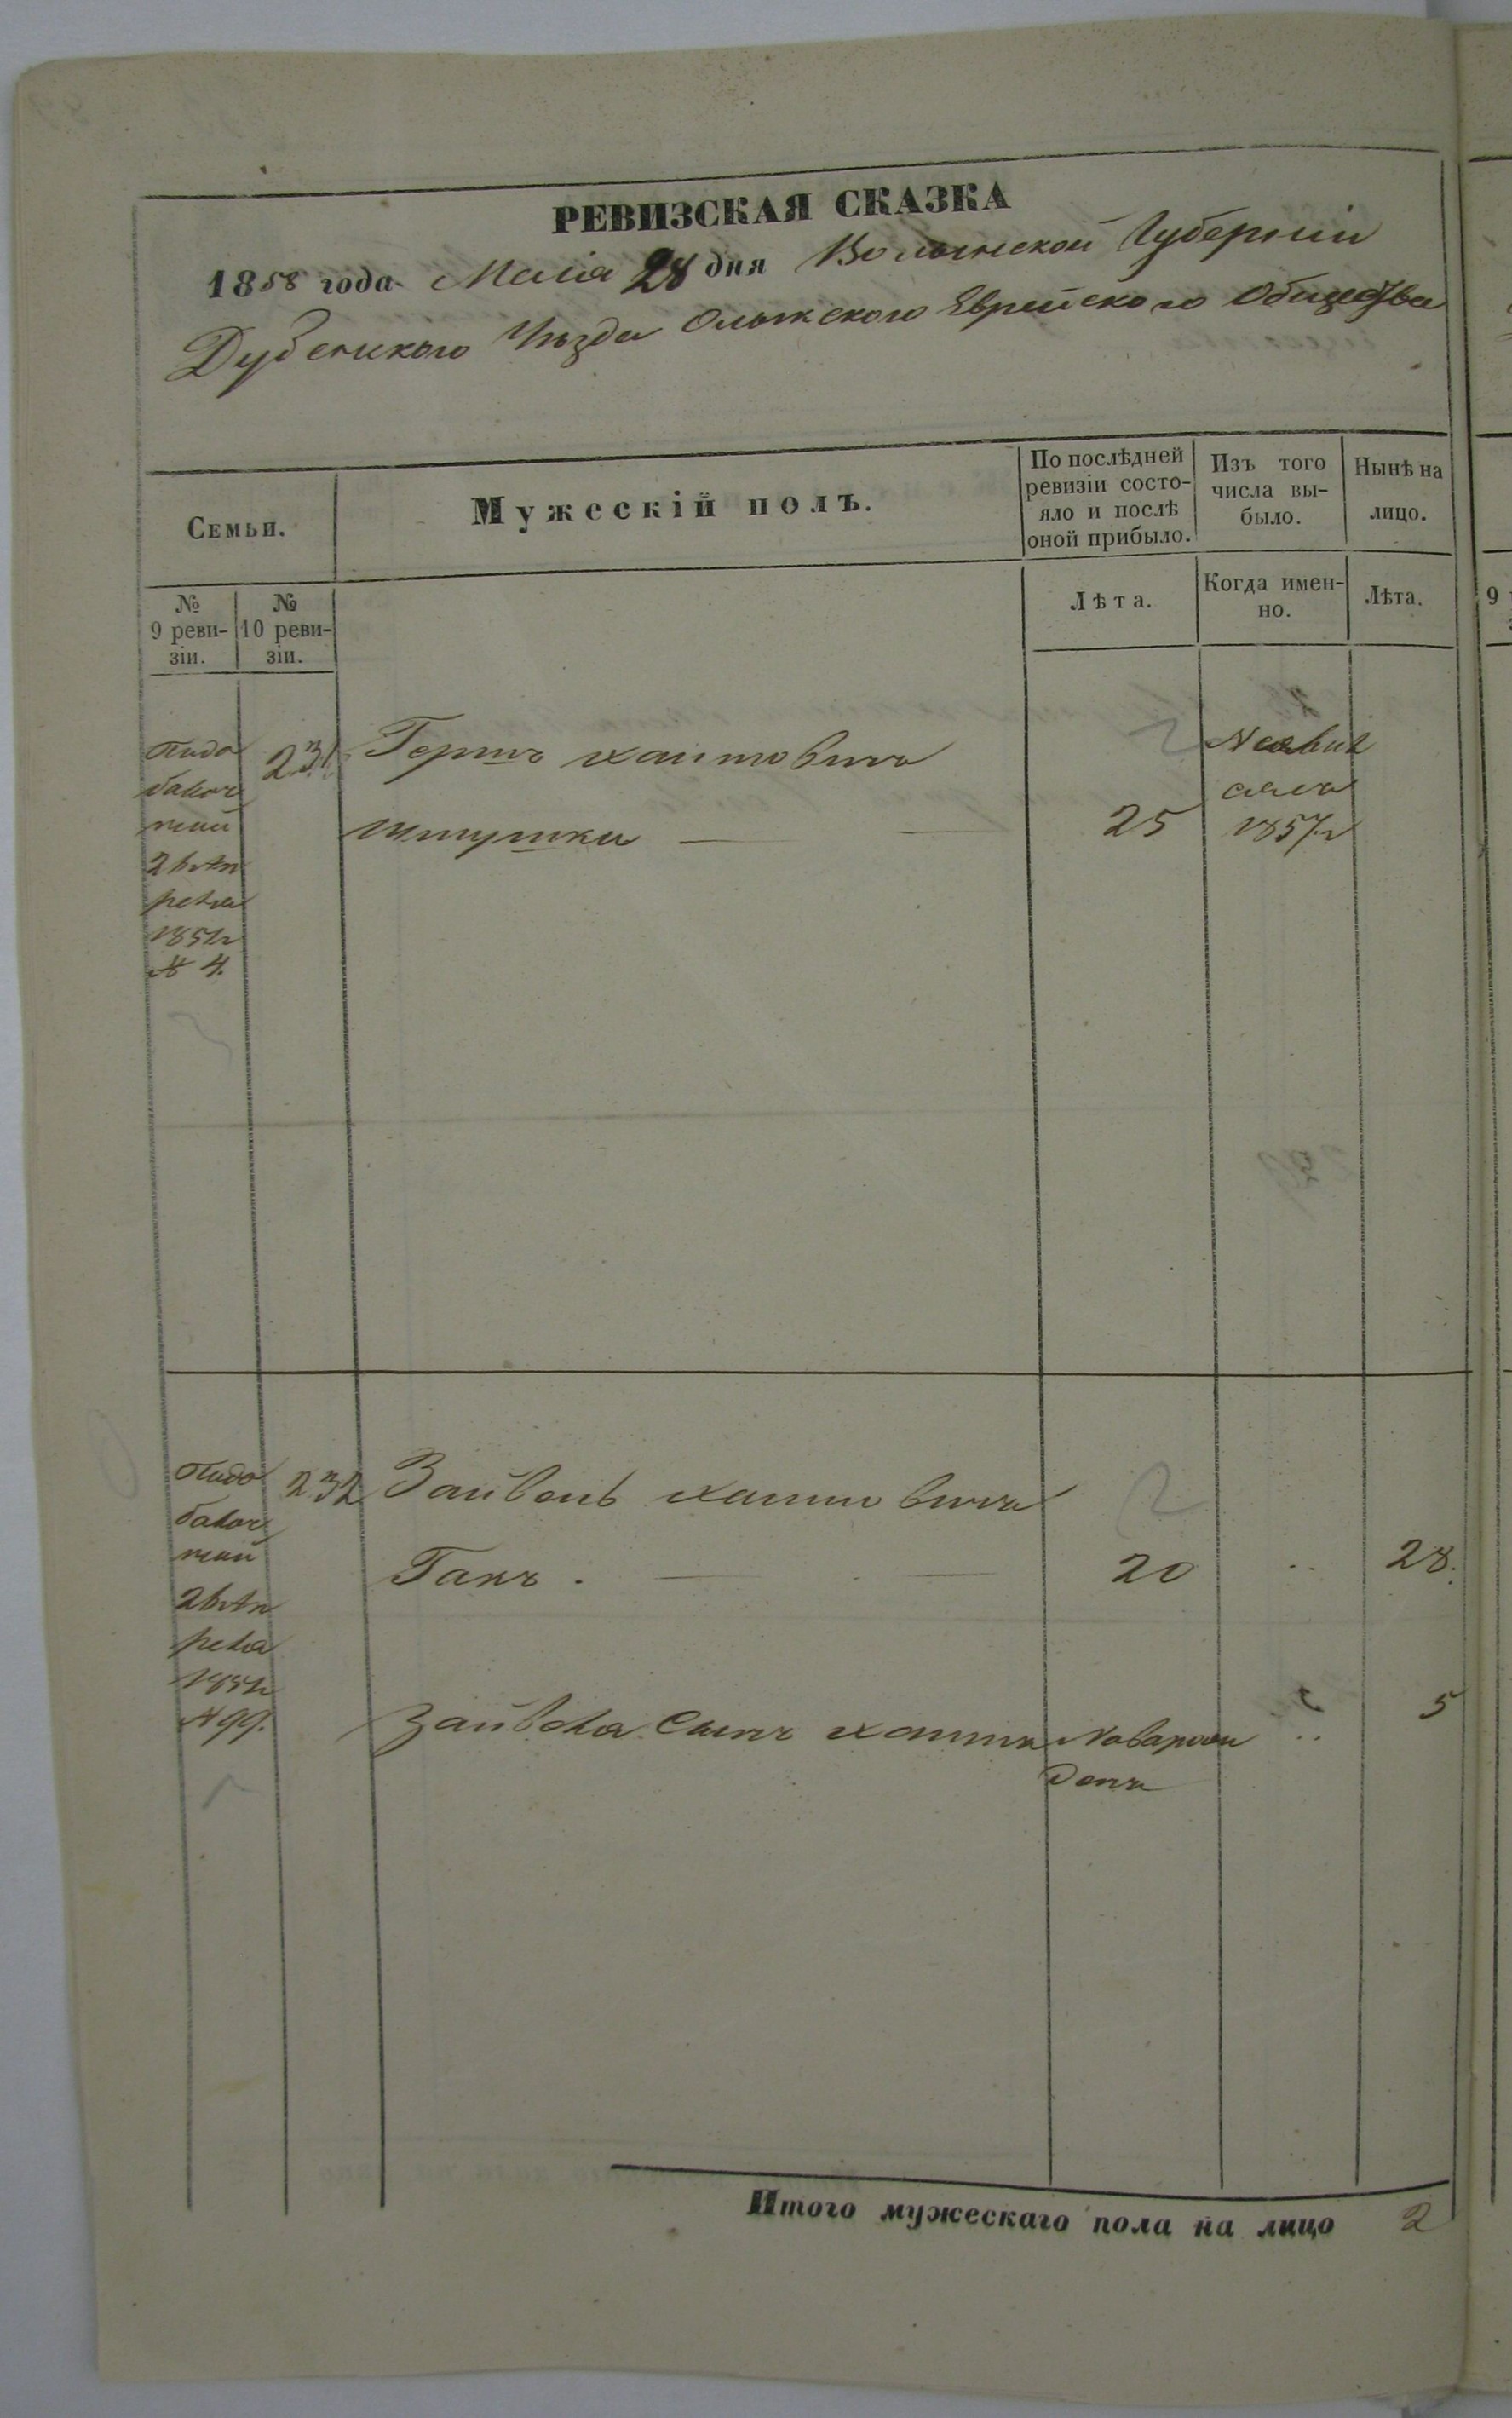 РЕВИЗСКАЯ СКАЗКА
1858 года Маія 28 дня Волынской Губерніи
Дубенского Уѣзда Олыкского Еврейского Общества
Семьи.
Мужескій полъ.
По послѣдней ревизіи состо-
яло и послѣ
оной прибыло.
Изъ того
числа вы-
было.
Нынѣ на
лицо.
№
9 реви-
зіи.
№
10 реви-
зіи.
Лѣта.
Когда имен-
но.
Лѣта.
По до
бавоч
ной
2 Октя
1851
№ 4.
231
Гершъ Хаимовичъ
25
1857 г
По до
бавоч
ной
1851
№ 99.
232
Зайвель Хаимовичъ
Гакъ. 20 28.
Зайвеля Сынъ Хаимъ Новорож 5
денъ
Итого мужескаго пола на лицо 2